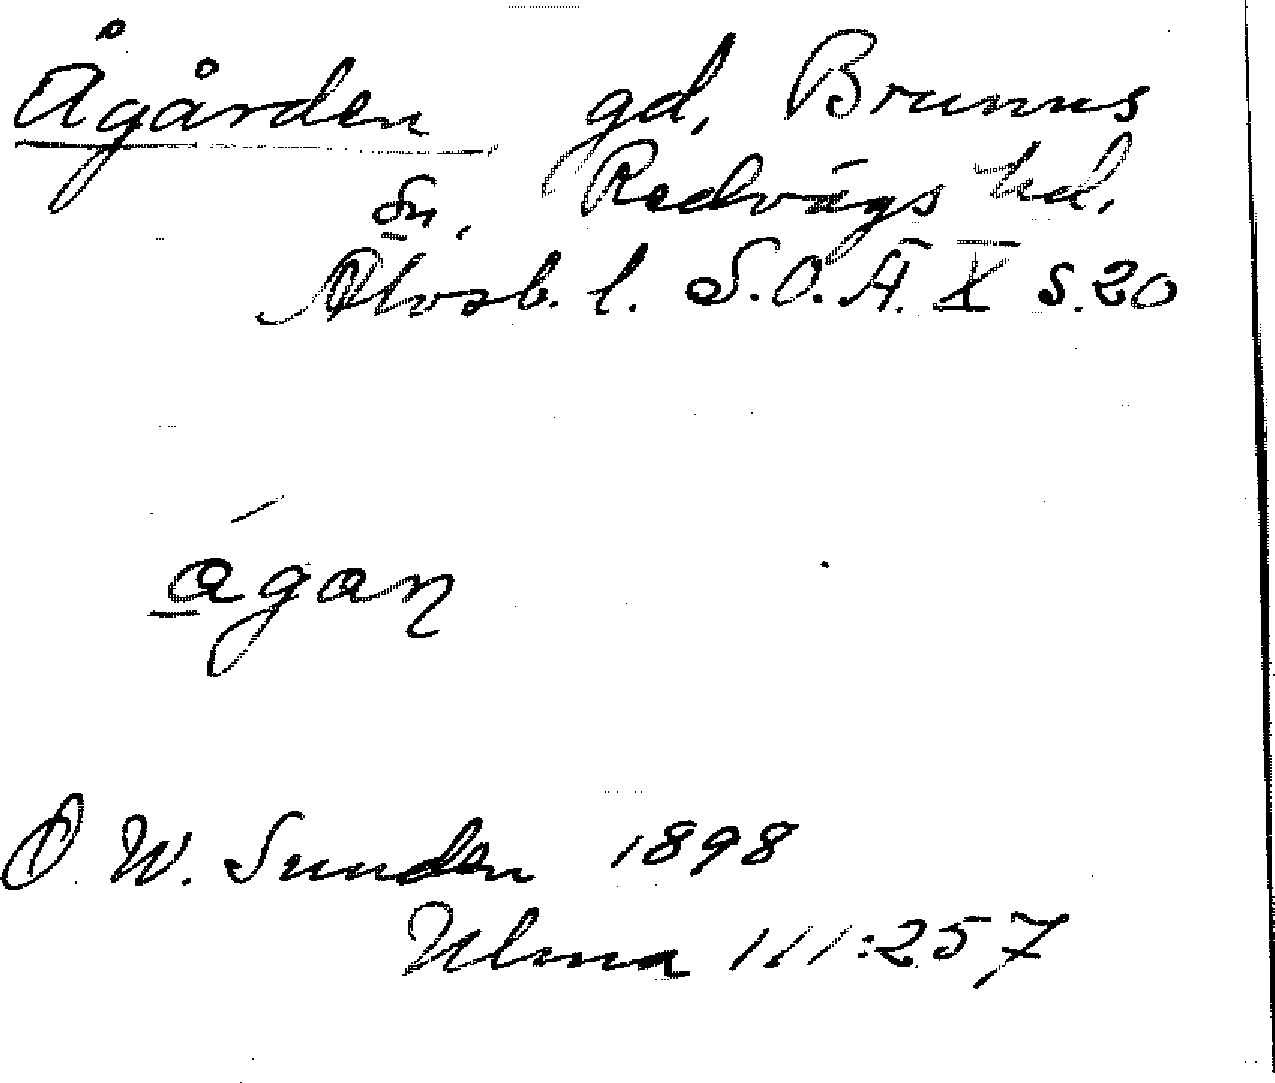 Ågården gd, Brunns
sn, Redvägs hd,
Älvsb. l. S.O.Ä. X s.20
ágaɳ
D W. Sunden 1898
Ulma 111:257